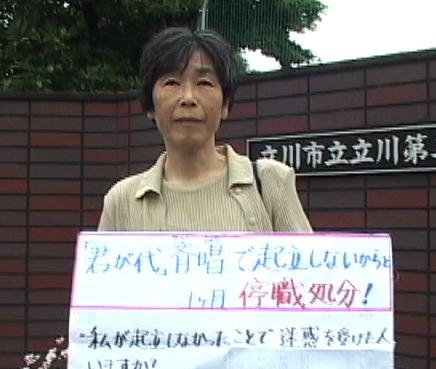 立川市立立川第
「君が代」斉唱で起立しないからと
1ヶ月 停職処分！
私が起立しなかったことで迷惑を受けた人
いますか？